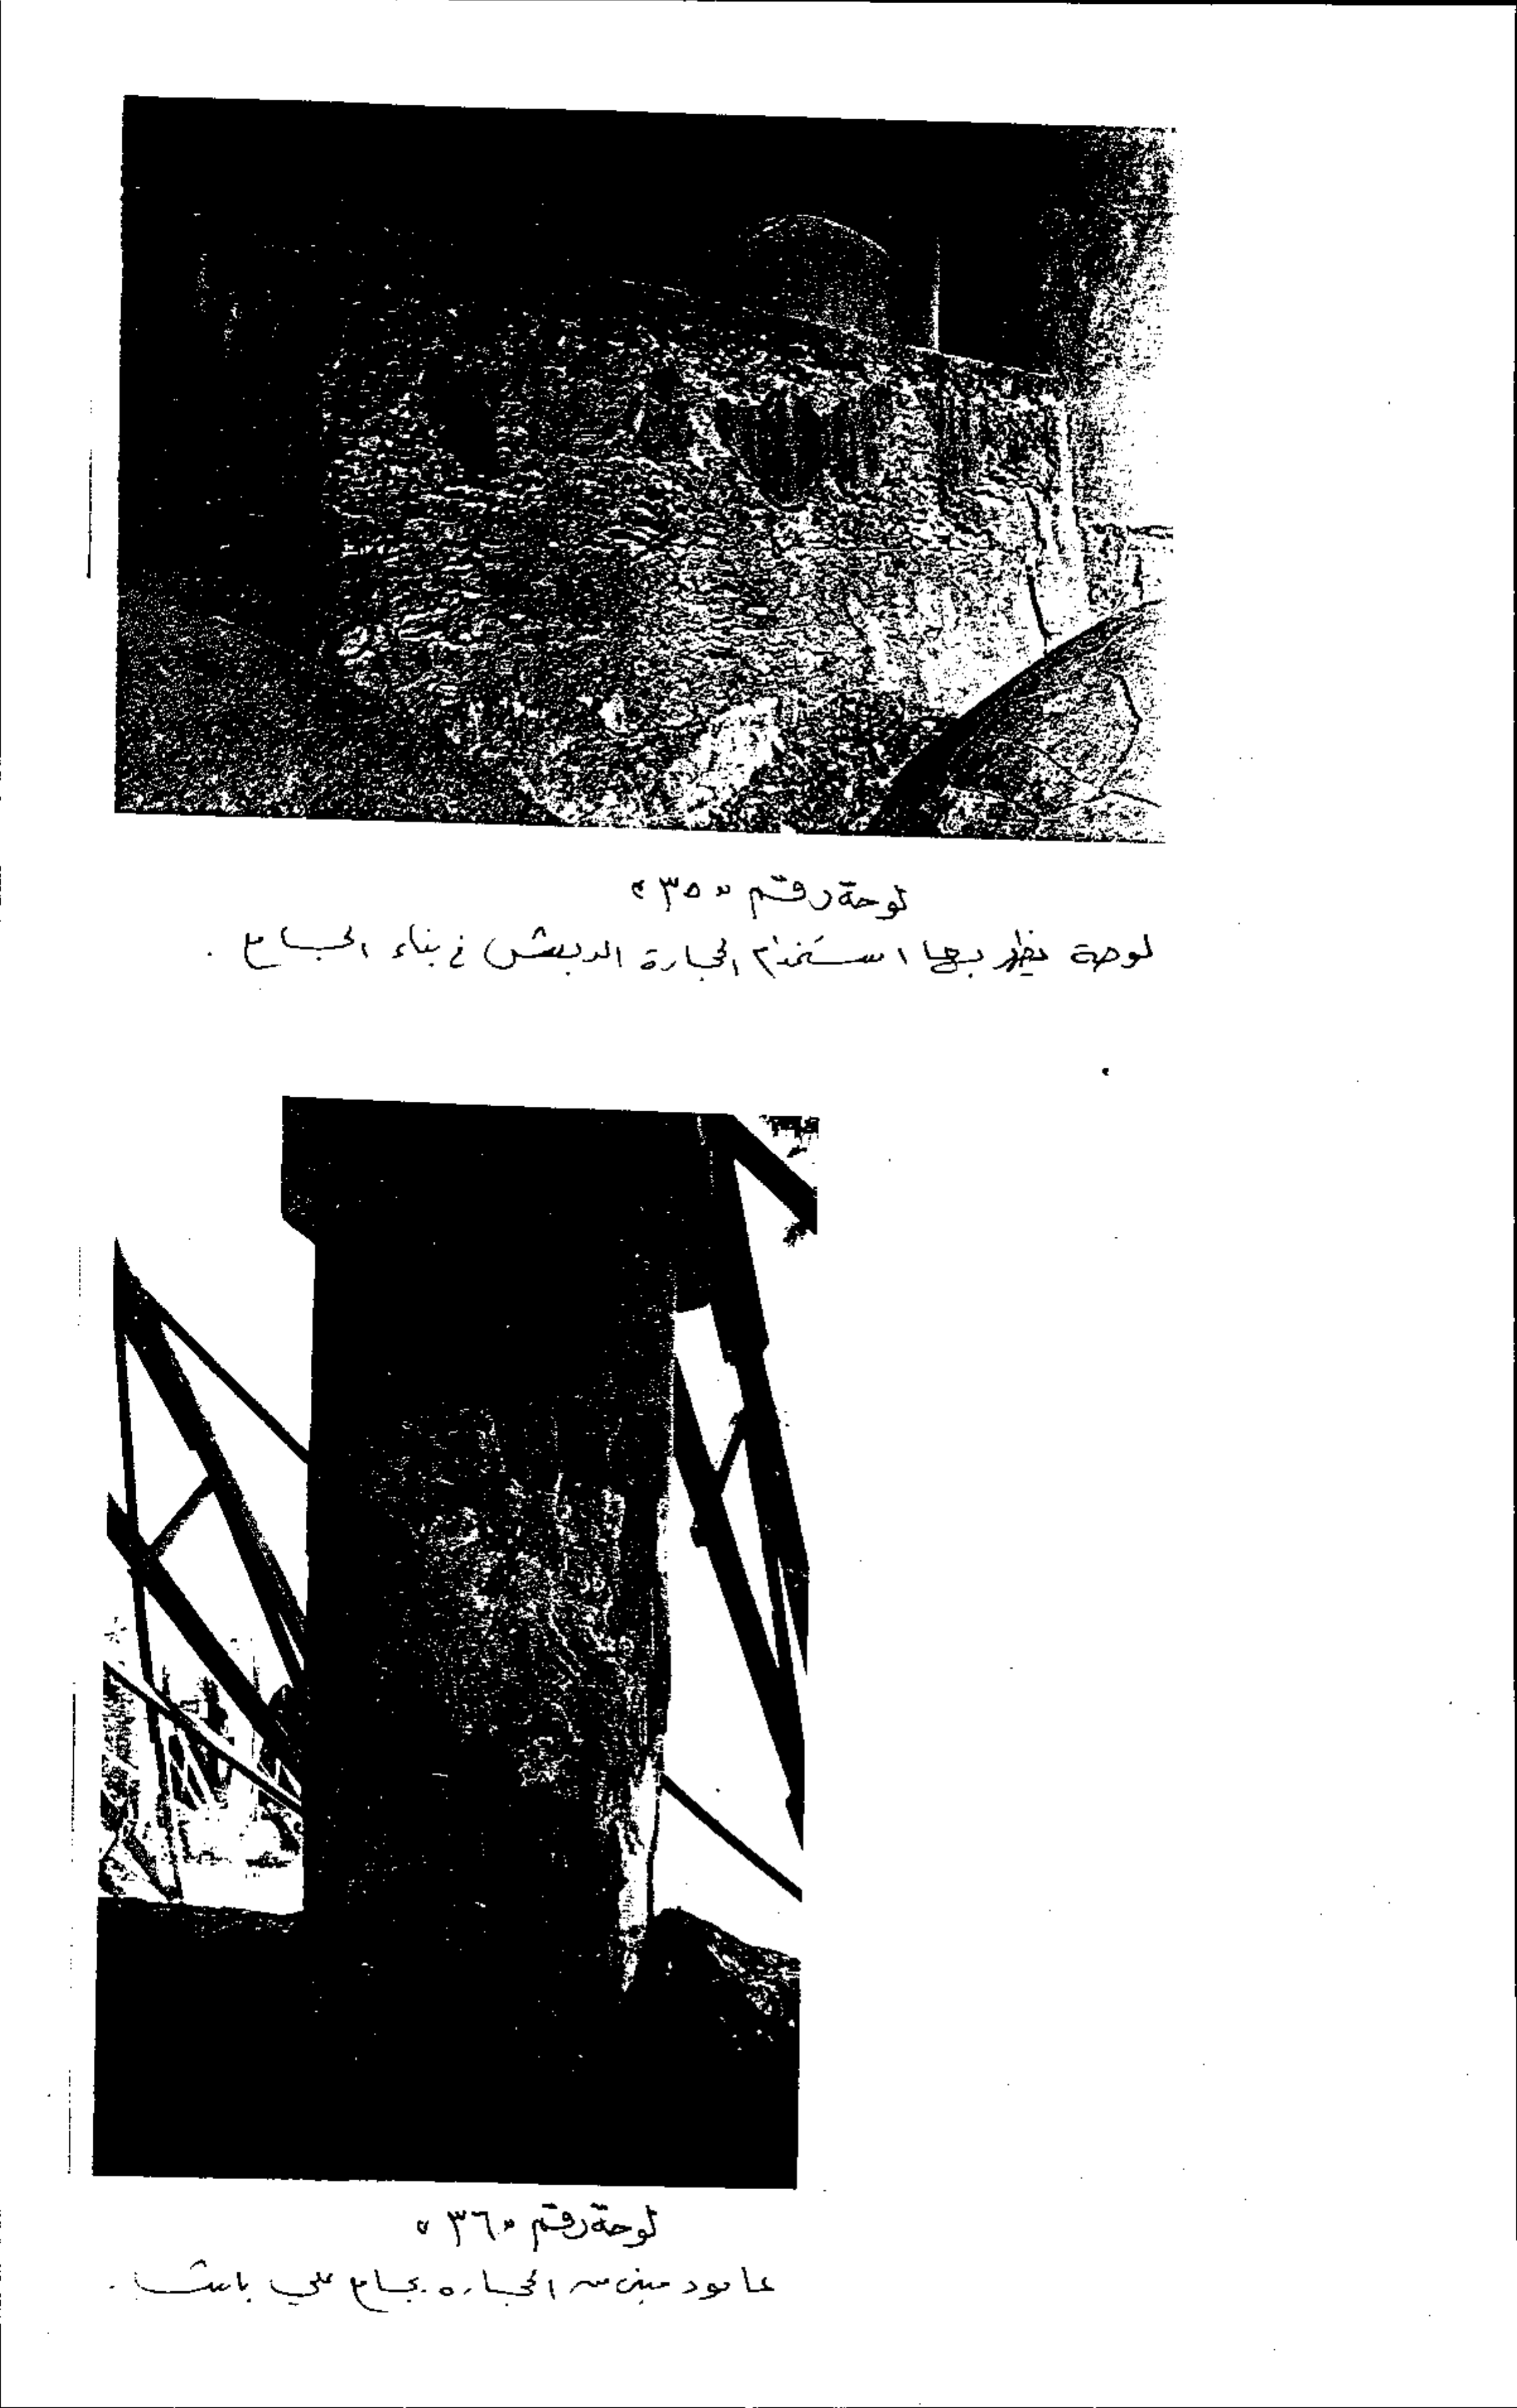 لوحة رقم «٣٥»
لوحة يظهر بها استخدام الحجارة الدبش في بناء الجامع .
لوحة رقم «٣٦»
عامود مبنى من الحجاره بجامع علي باشا .